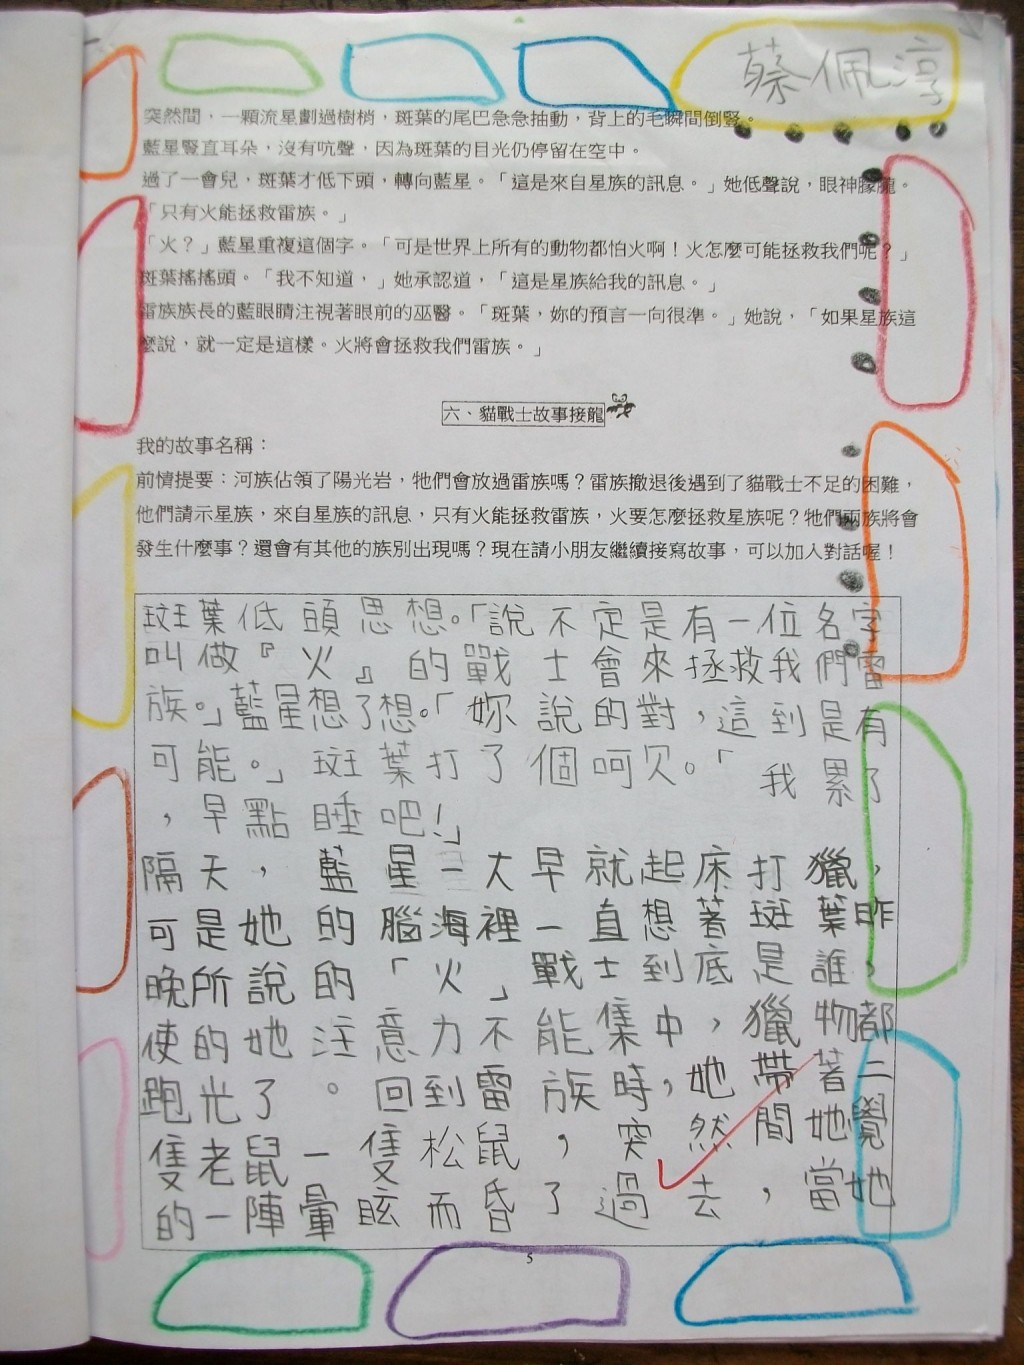 蔡佩淳
突然間，一顆流星劃過樹梢，斑葉的尾巴急急抽動，背上的毛瞬間倒豎。
藍星豎直耳朵，沒有吭聲，因為斑葉的目光仍停留在空中。
過了一會兒，斑葉才低下頭，轉向藍星。「這是來自星族的訊息。」她低聲說，眼神朦朧。
「只有火能拯救雷族。」
「火？」藍星重複這個字。「可是世界上所有的動物都怕火啊！火怎麼可能拯救我們呢？」
斑葉搖搖頭。「我不知道，」她承認道，「這是星族給我的訊息。」
雷族族長的藍眼睛注視著眼前的巫醫。「斑葉，妳的預言一向很準。」她說，「如果星族這
麼說，就一定是這樣。火將會拯救我們雷族。」
六、貓戰士故事接龍
我的故事名稱：
前情提要：河族佔領了陽光岩，牠們會放過雷族嗎？雷族撤退後遇到了貓戰士不足的困難，
他們請示星族，來自星族的訊息，只有火能拯救雷族，火要怎麼拯救星族呢？牠們兩族將會
發生什麼事？還會有其他的族別出現嗎？現在請小朋友繼續接寫故事，可以加入對話喔！
斑葉低頭思想。「說不定是有一位名字
叫做『火』的戰士會來拯救我們雷
族。」藍星想了想。「妳說的對，這到是有
可能。」斑葉打了個呵欠。「我累了
，早點睡吧！」
隔天，藍星一大早就起床打獵，
可是她的腦海裡一直想著斑葉昨
晚所說的「火」戰士到底是誰，
使的她注意力不能集中，獵物都
跑光了。回到雷族時，她帶著二
隻老鼠一隻松鼠，突然間她覺
的一陣暈眩而昏了過去，當她
5